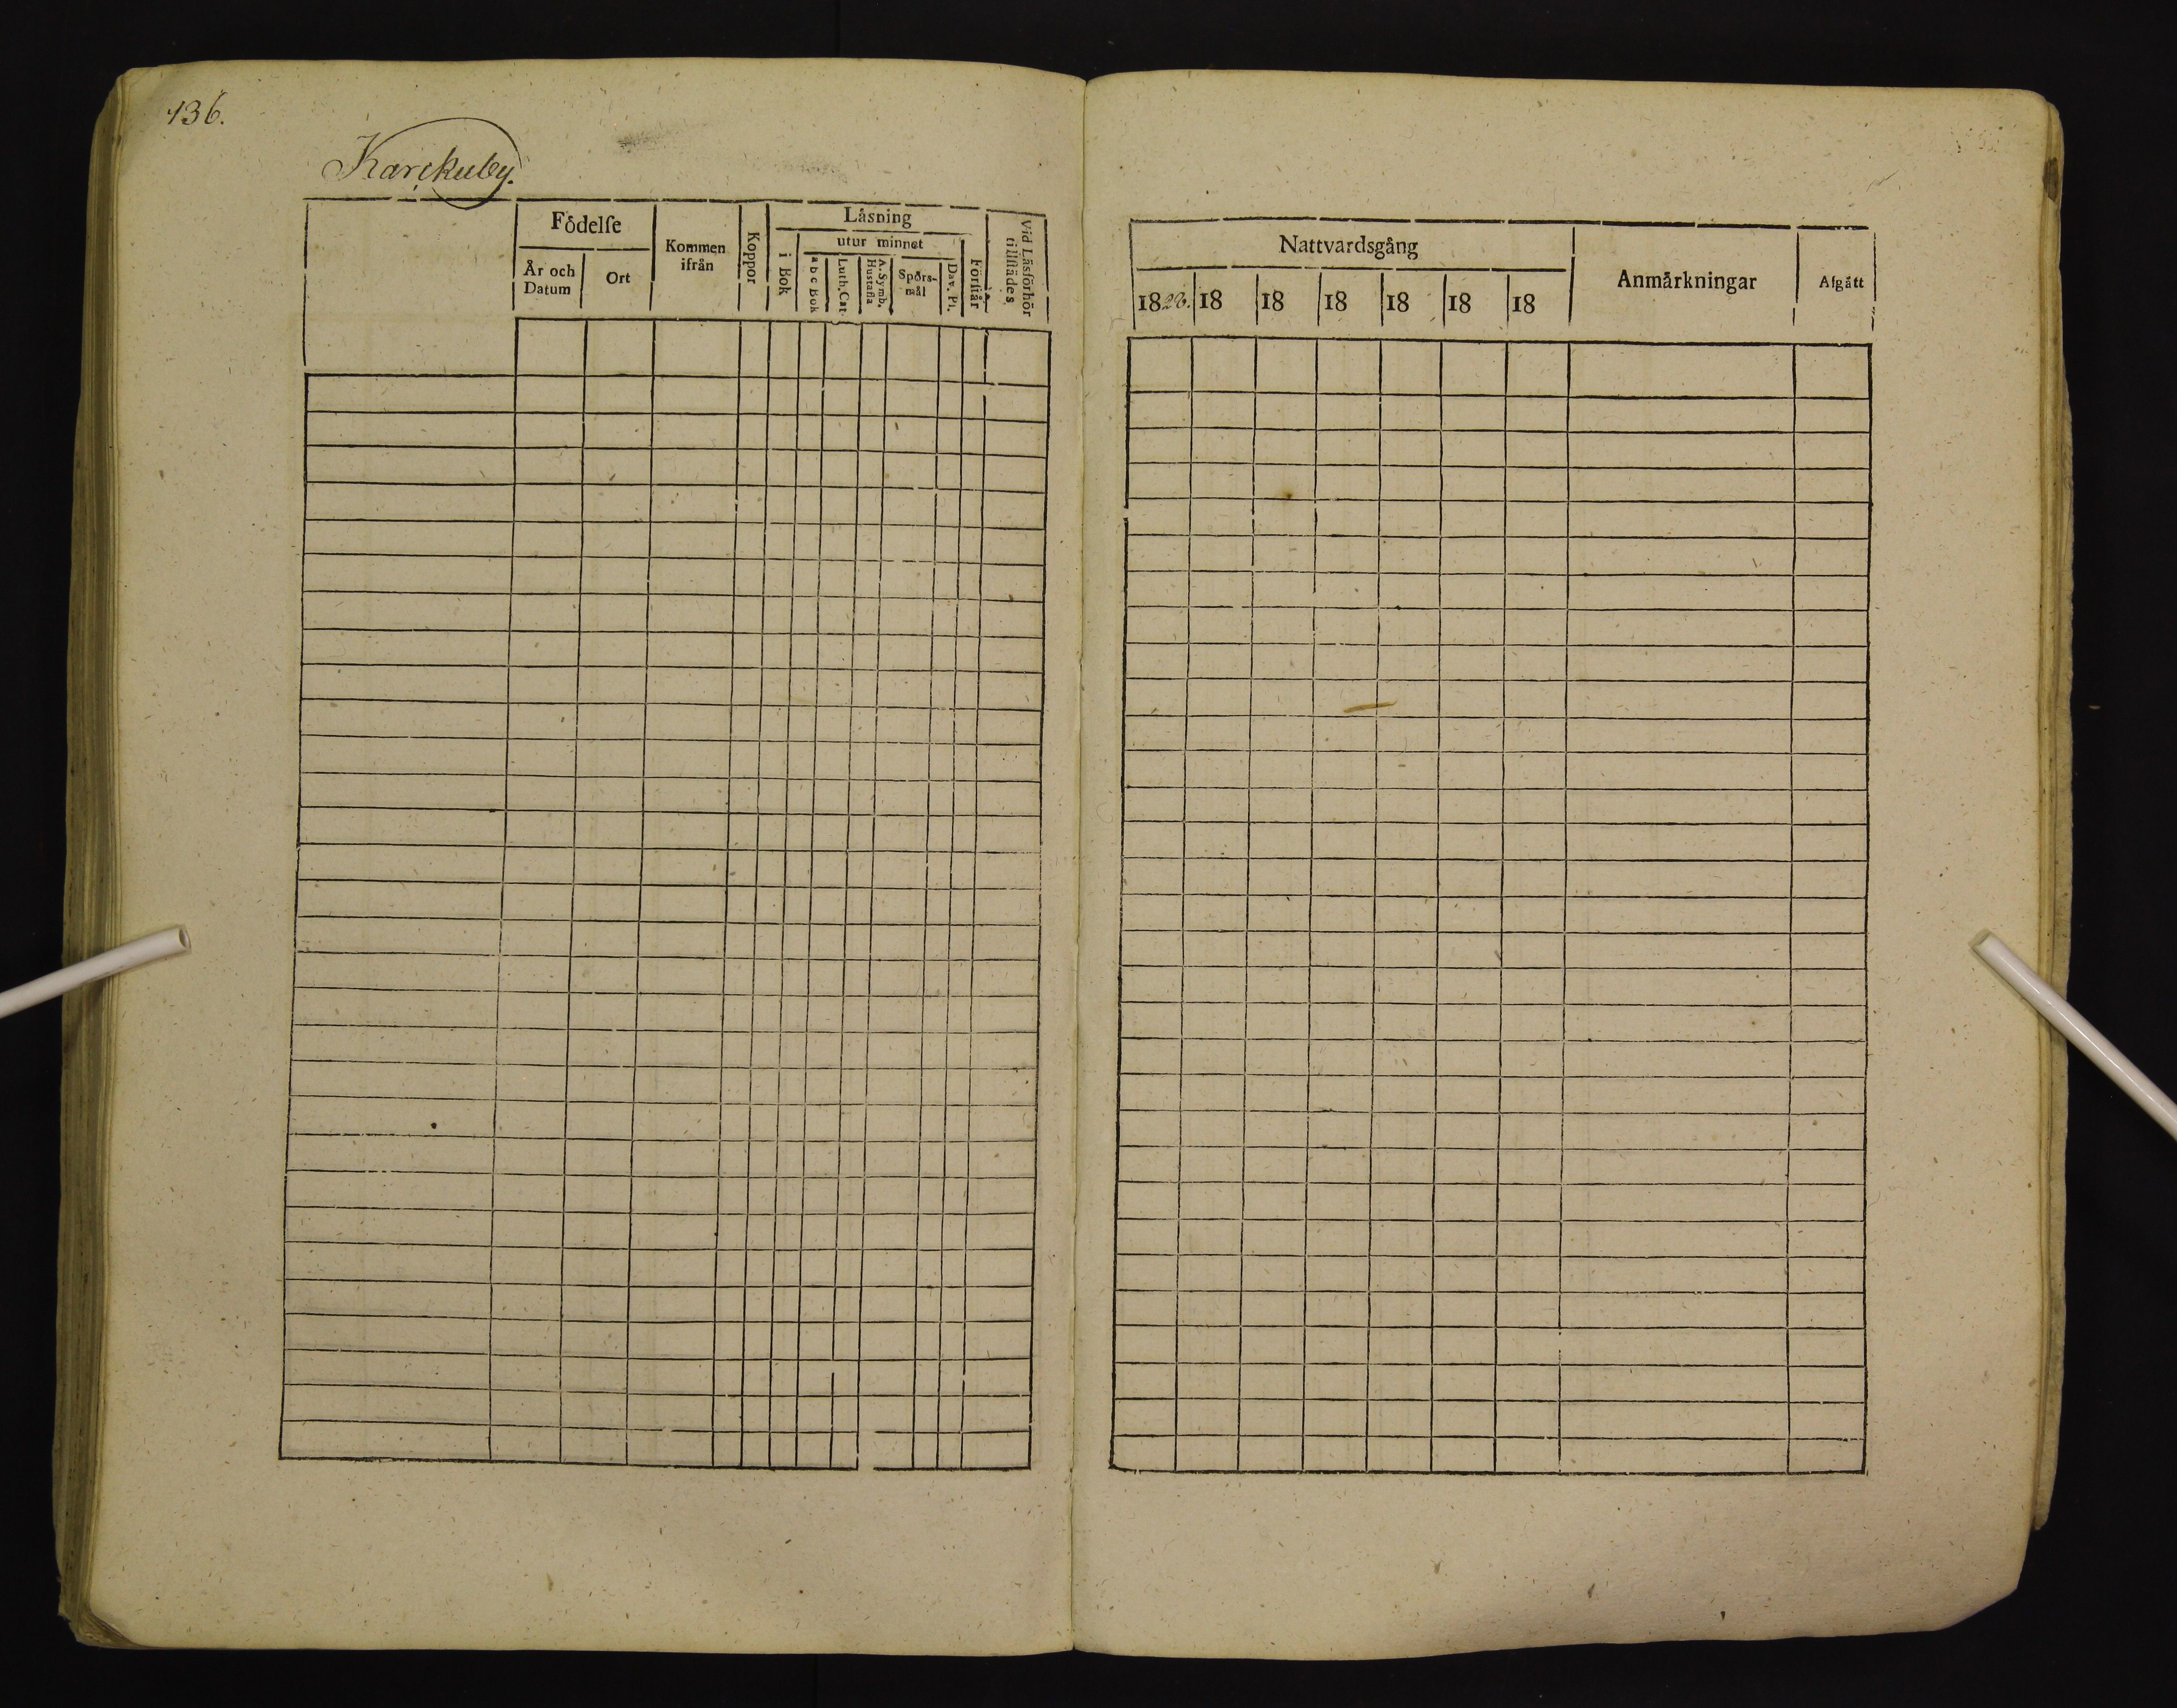 136.
Karckuby.
Födelſe
År och Datum
Ort
Kommen ifrån
Koppor
Läsning
i Bok
utur minnet
a b c Bok
Luth. Cat.
A. Symb. Hustafla
Spörs-mål
Dav. Ps.
Förſtår
Vid Läsförhör tillſtädes
Nattvardsgång
18 18 18 18 18 18 18
Anmärkningar
Afgått